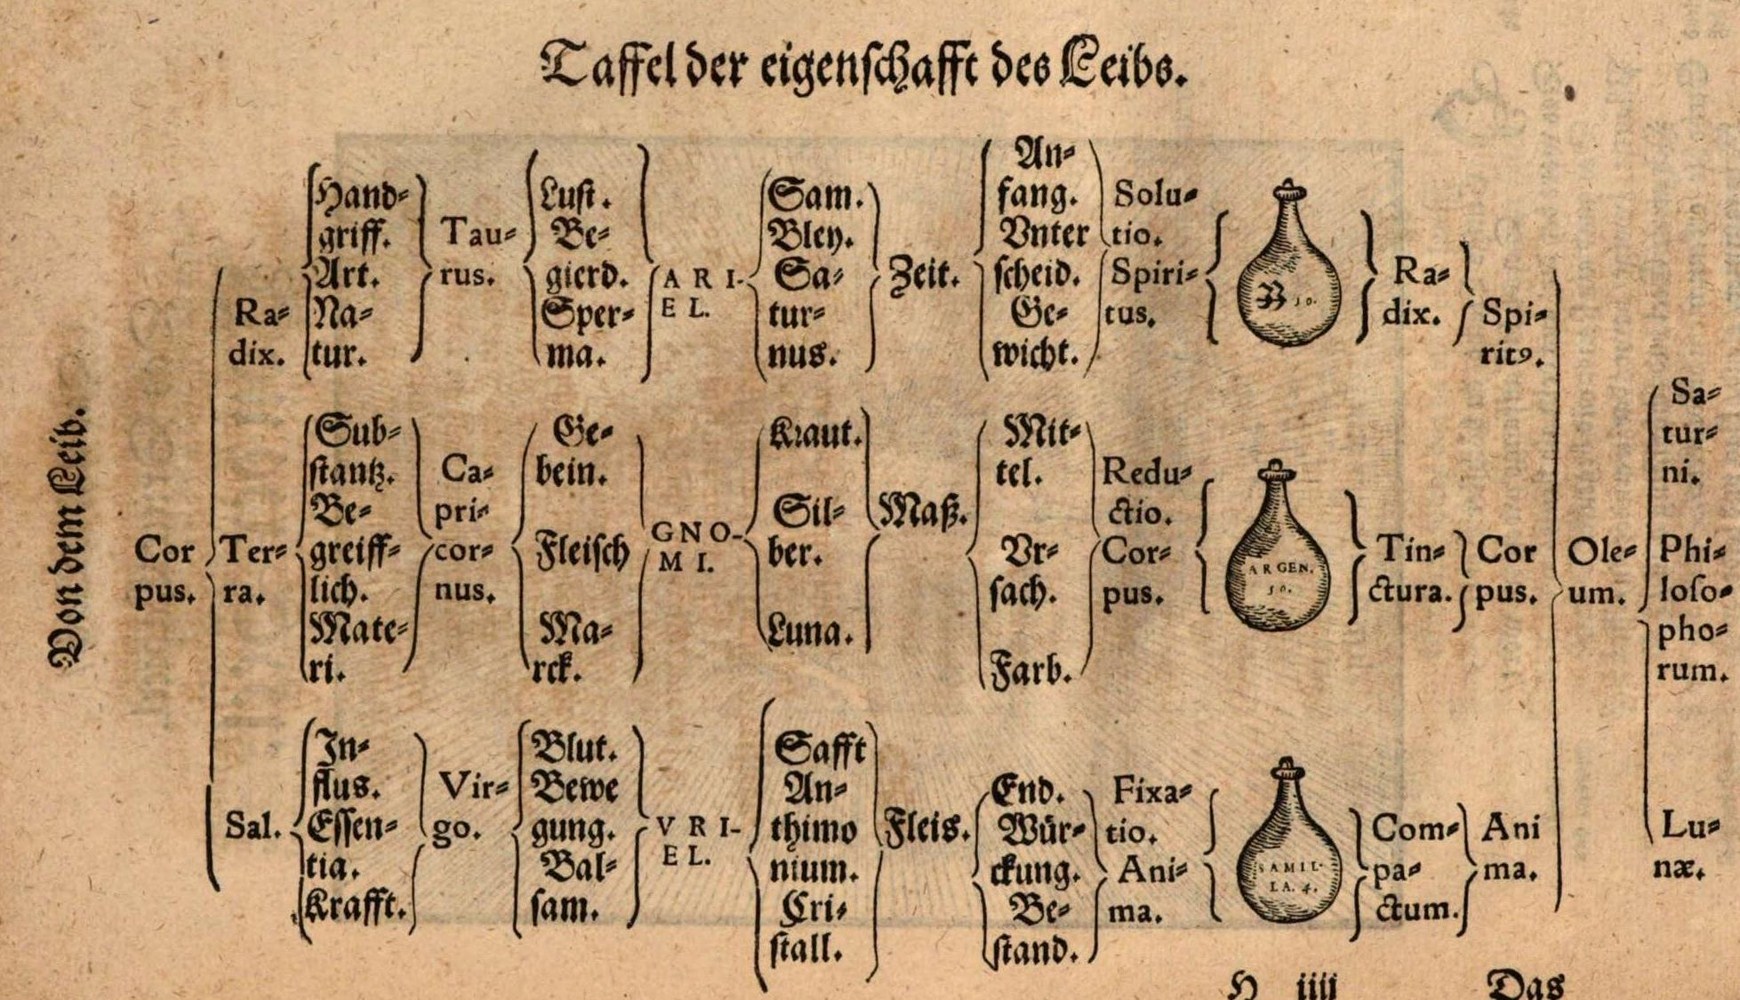 Taffel der eigenſchafft des Leibs.
Von dem Leib.
Cor
pus.
Ra⸗
dix.
Hand⸗
griff.
Art.
Na⸗
tur.
Tau⸗
rus.
Luſt.
Be⸗
gierd.
Sper⸗
ma.
ARI-
EL.
Sam.
Bley.
Sa⸗
tur⸗
nus.
Zeit.
An⸗
fang.
Vnter
ſcheid.
Ge⸗
wicht.
Solu⸗
tio.
Spiri⸗
tus.
30.
Ra⸗
dix.
Spi⸗
ritꝰ.
Ter⸗
ra.
Sub⸗
ſtantz.
Be⸗
greiff⸗
lich.
Mate⸗
ri.
Ca⸗
pri⸗
cor⸗
nus.
Ge⸗
bein.
Fleiſch
Ma⸗
rck.
GNO-
MI.
Kraut.
Sil⸗
ber.
Luna.
Maß.
Mit⸗
tel.
Vr⸗
ſach.
Farb.
Redu⸗
ctio.
Cor⸗
pus.
ARGEN.
50.
Tin⸗
ctura.
Cor
pus.
Sal.
In⸗
flus.
Eſſen⸗
tia.
Krafft.
Vir⸗
go.
Blut.
Bewe
gung.
Bal⸗
ſam.
VRI-
EL.
Safft
An⸗
thimo
nium.
Cri⸗
ſtall.
Fleis.
End.
Wür⸗
ckung.
Be⸗
ſtand.
Fixa⸗
tio.
Ani⸗
ma.
SAMIL-
LA. 4.
Com⸗
pa⸗
ctum.
Ani
ma.
Ole⸗
um.
Sa⸗
tur⸗
ni.
Phi⸗
loſo⸗
pho⸗
rum.
Lu⸗
næ.
H iiii
Das